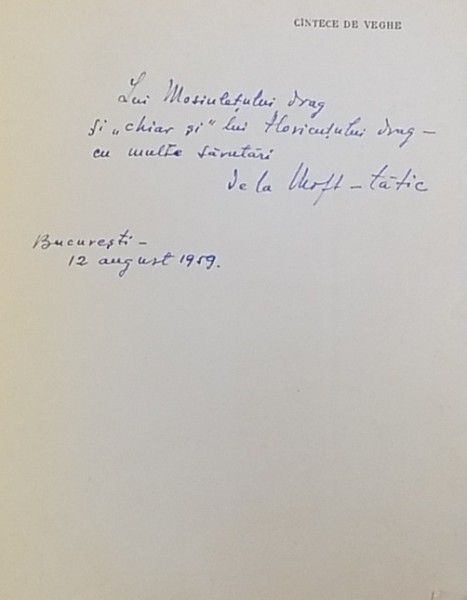 CÎNTECE DE VEGHE
Lui Mosiulețului drag
și „chiar și" lui Floricuțului drag –
cu multe sărutări
de la Moft – tătic
București –
12 august 1959.